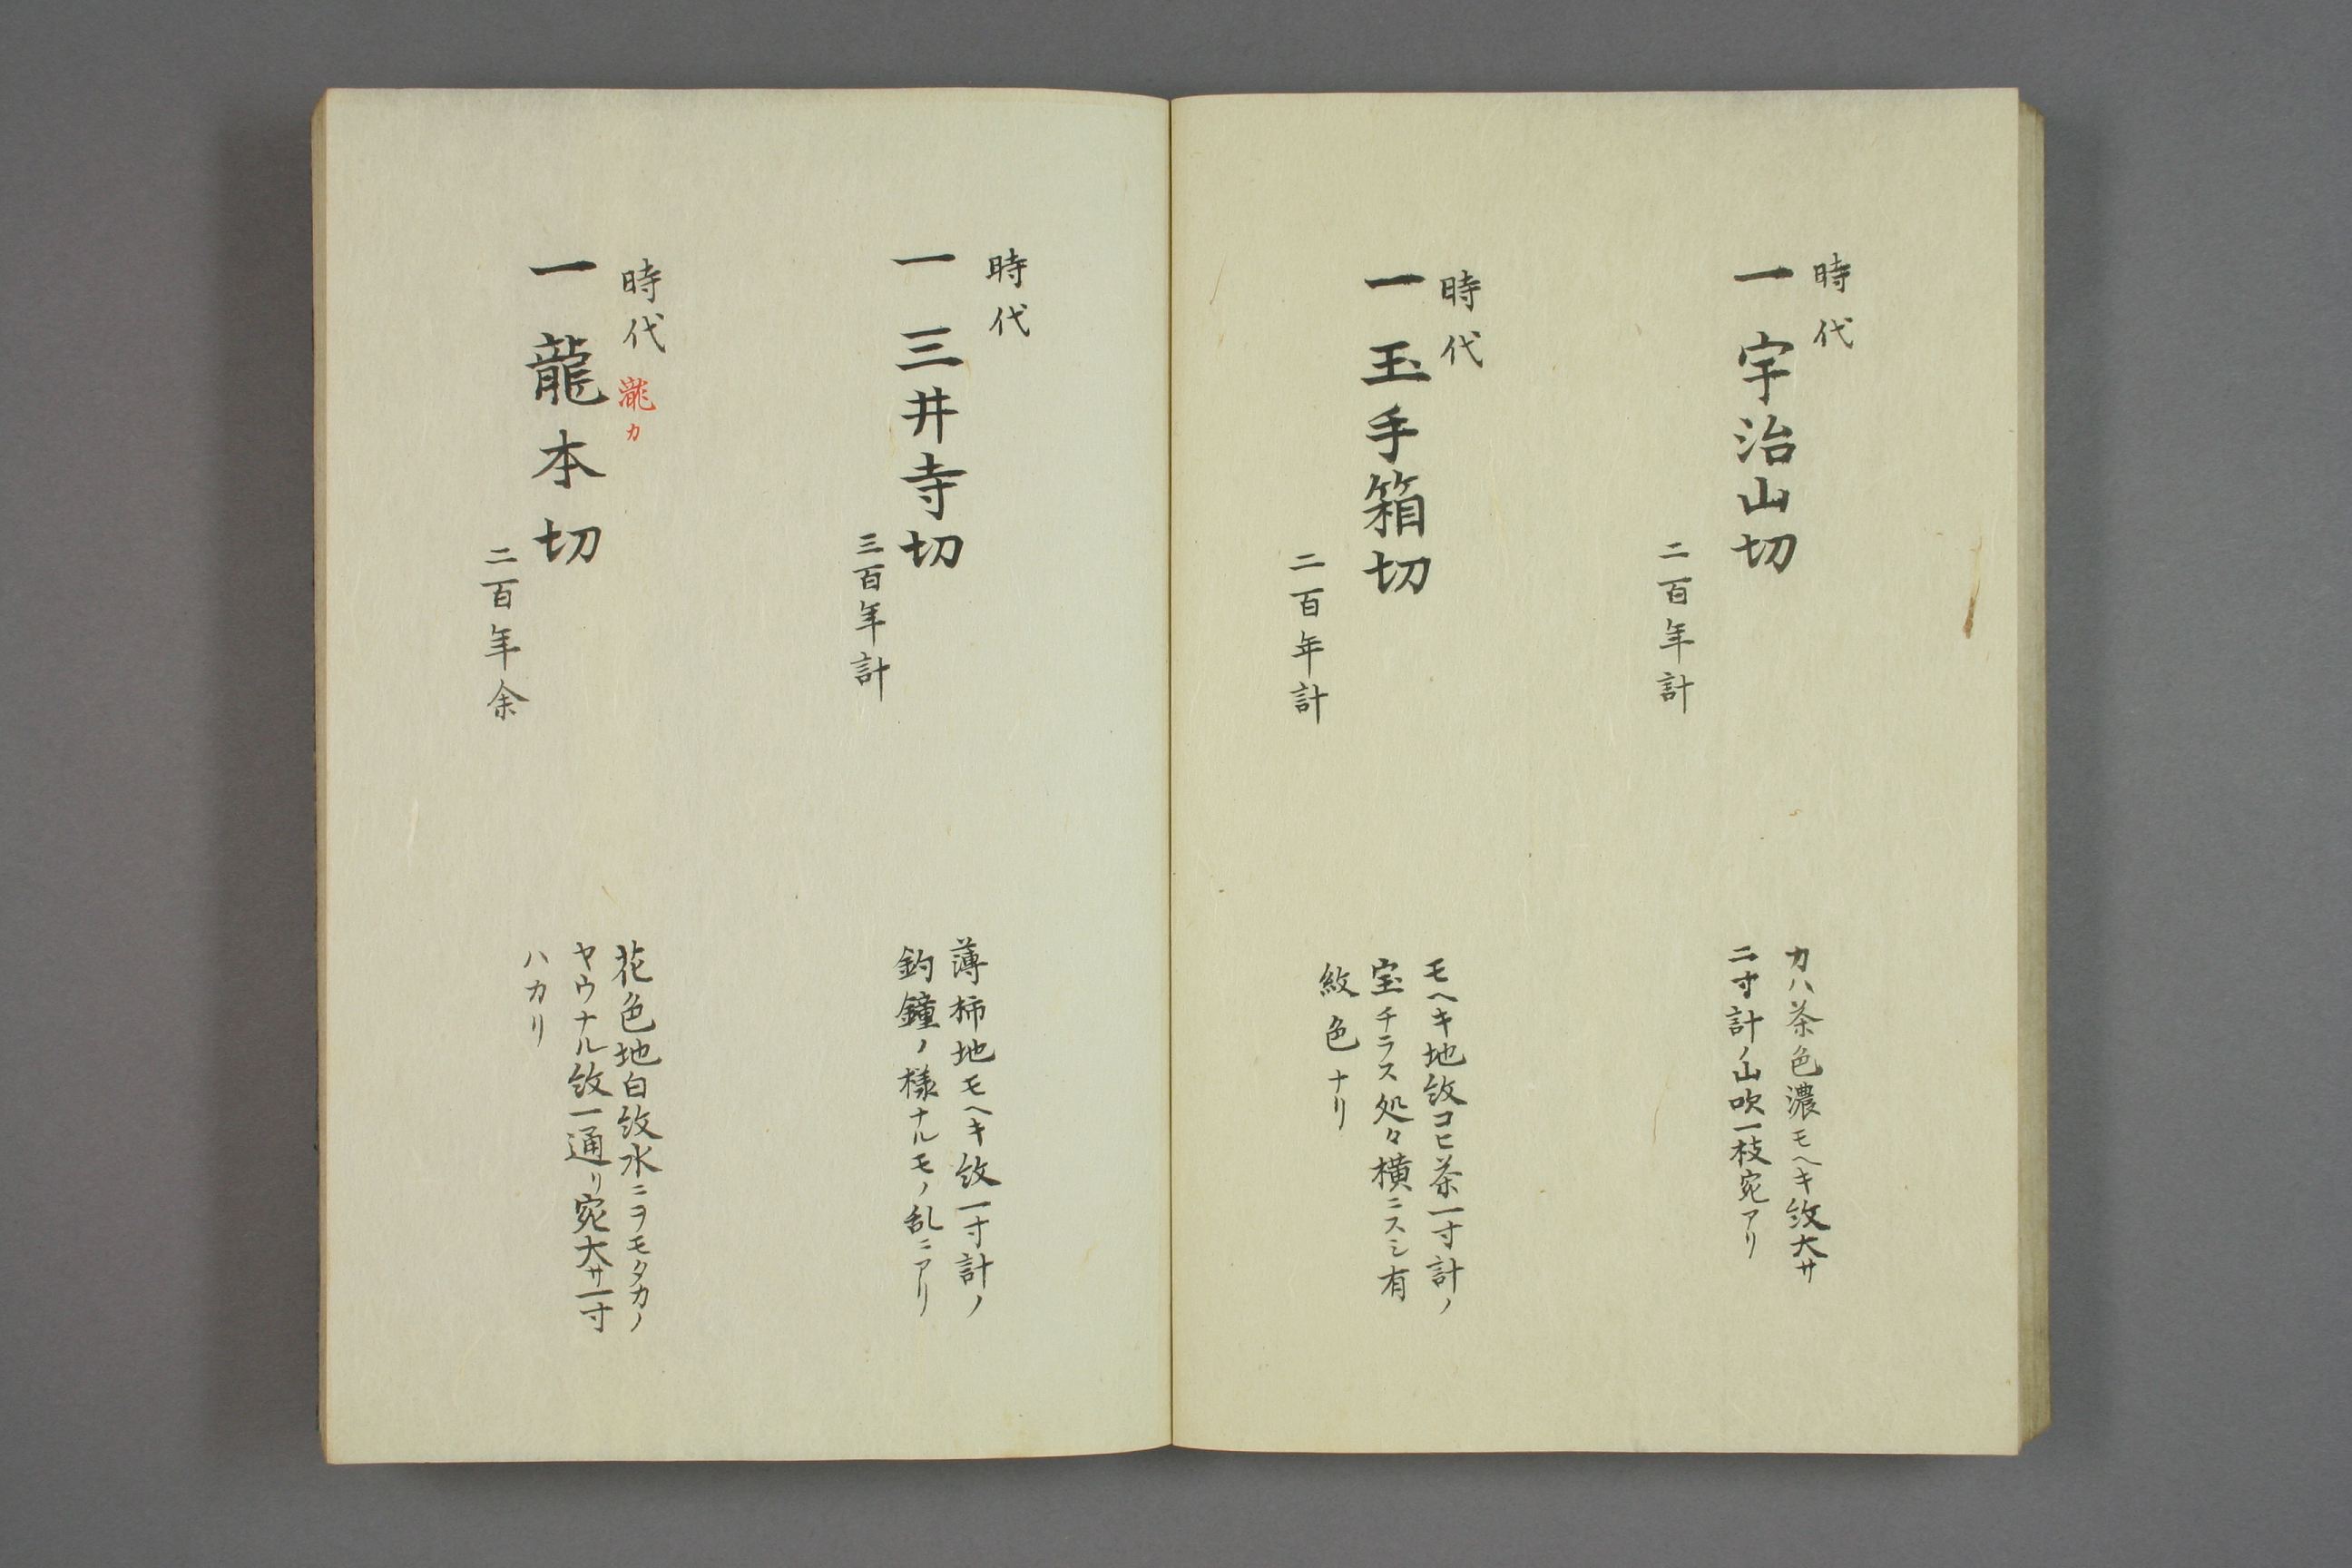 時代
一 宇治山切
二百年計
カハ茶色濃モヘキ紋大サ
二寸計ノ山吹一枝宛アリ
時代
一 玉手箱切
二百年計
モヘキ地紋コヒ茶一寸計ノ
宝チラス処々横ニスシ有
紋色ナリ
時代
一 三井寺切
三百年計
薄柿地モヘキ紋一寸計ノ
釣鐘ノ様ナルモノ乱ニアリ
時代
瀧カ
一 龍本切
二百年余
花色地白紋水ニヲモタカノ
ヤウナル紋一通リ宛大サ一寸
ハカリ